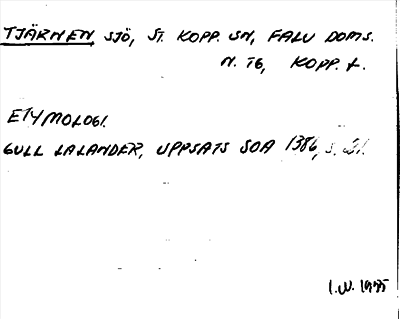 TJÄRNEN, SJÖ, ST. KOPP. SN, FALU DOMS.
N. TG, KOPP. L.
ETYMOLOGI.
GULL LALANDER, UPPSATS SOA 1386, S. 21.
I.W. 1975